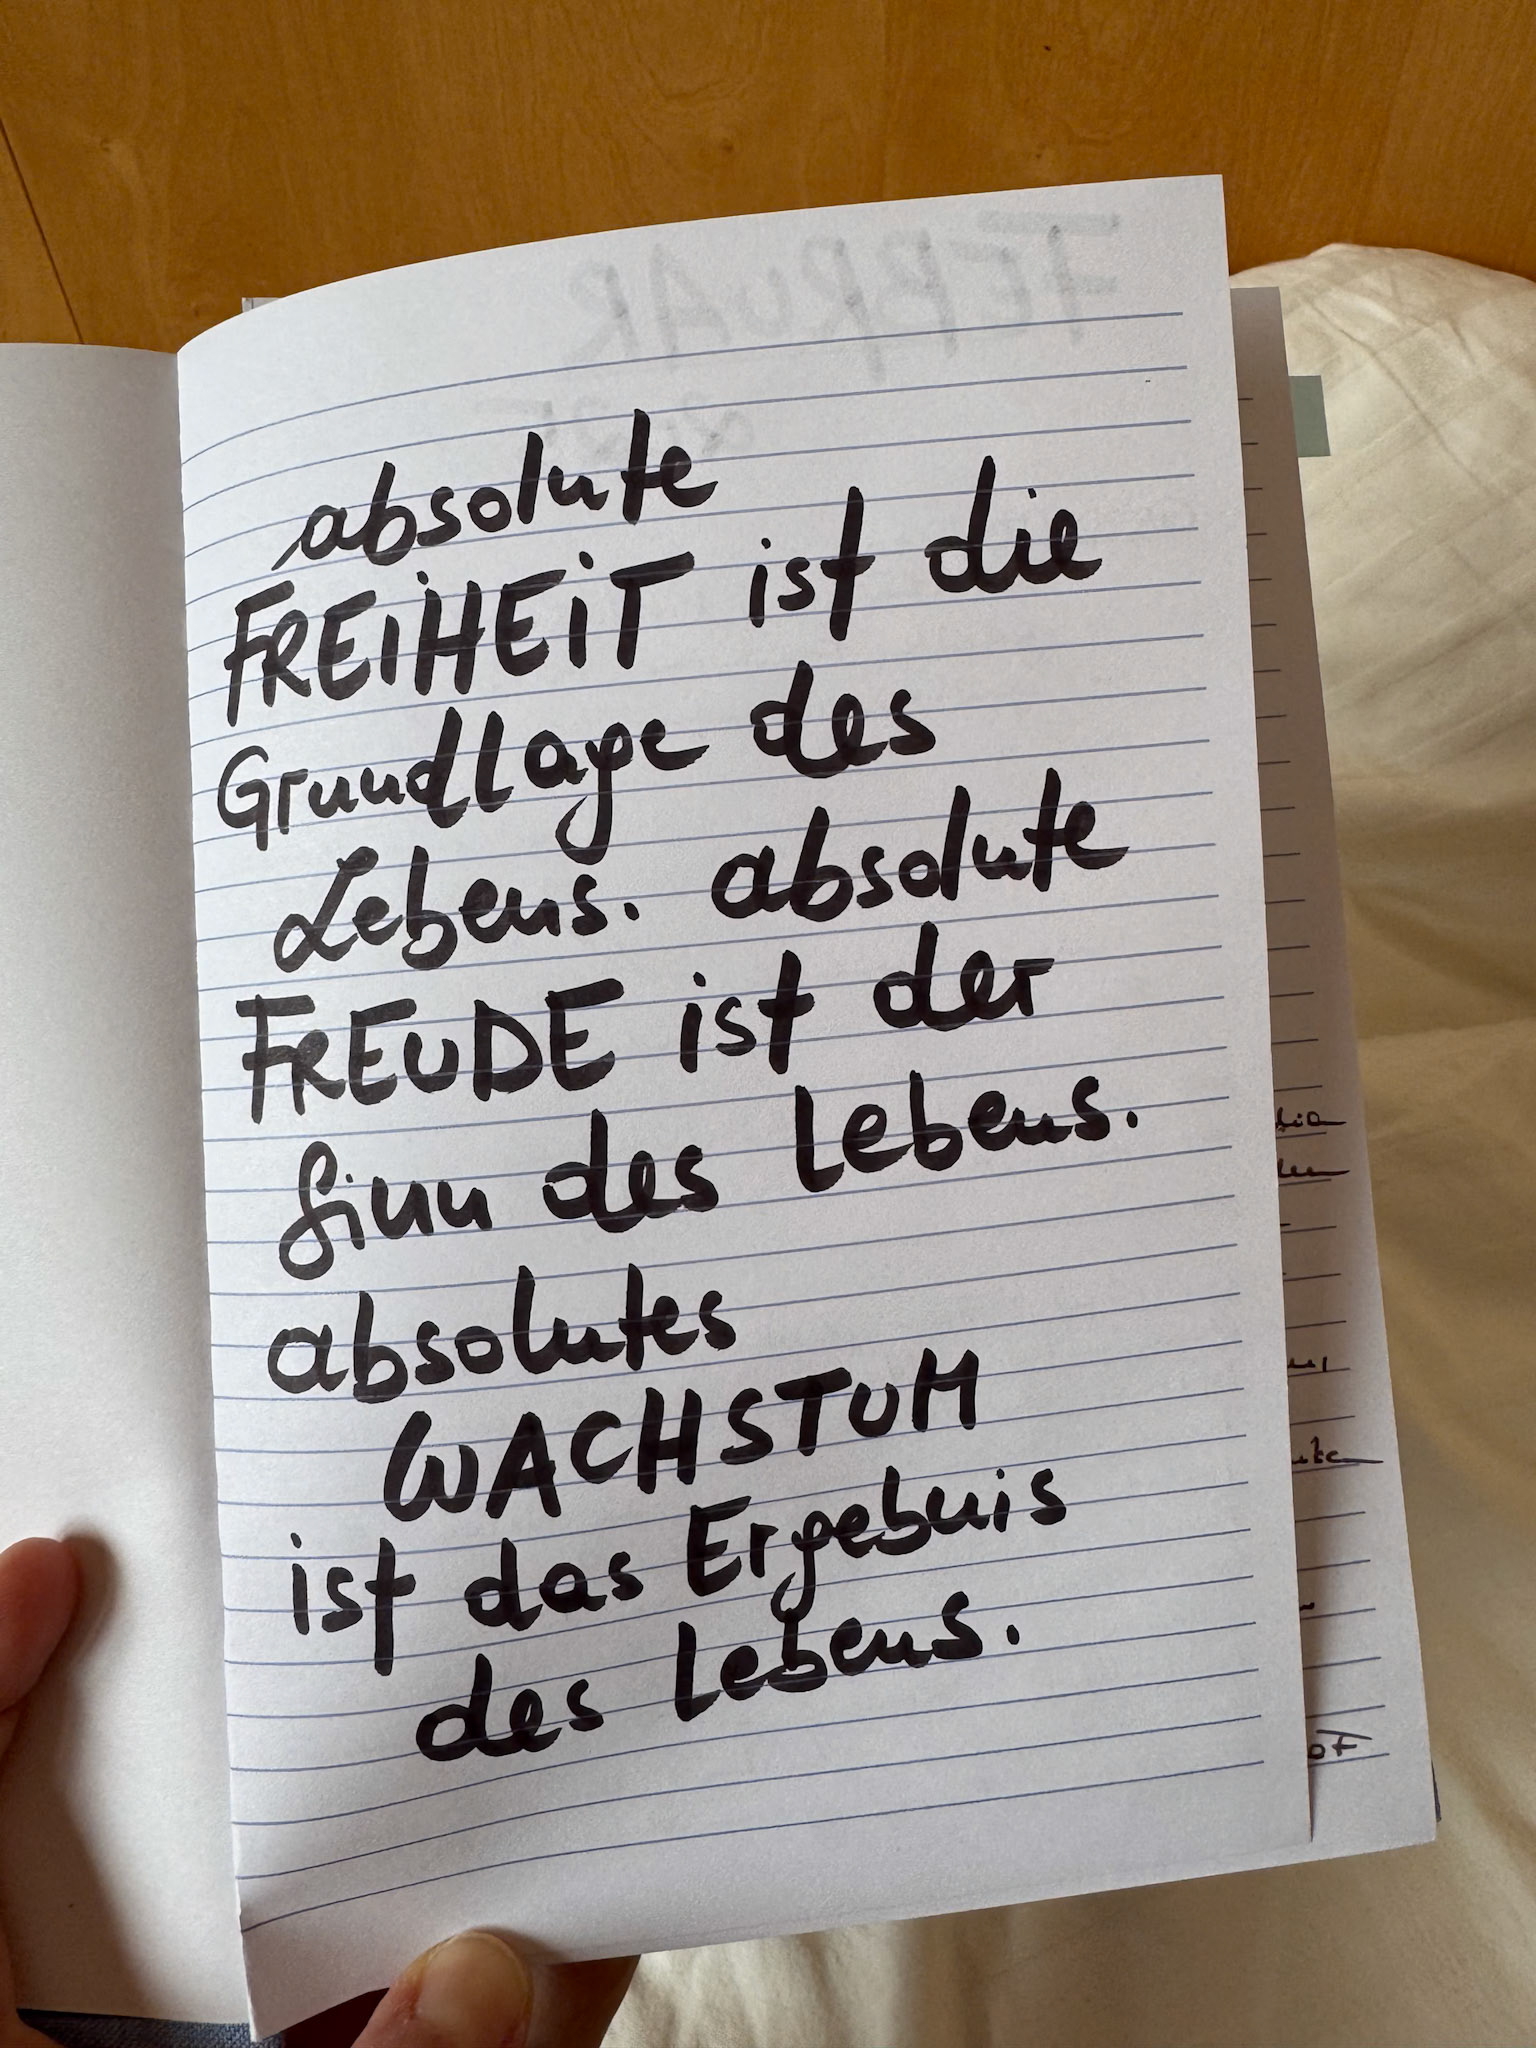 FEBRUAR
absolute
FREiHEiT ist die
Grundlage des
Lebens. absolute
FREUDE ist der
Sinn des Lebens.
absolutes
WACHSTUM
ist das Ergebnis
des Lebens.